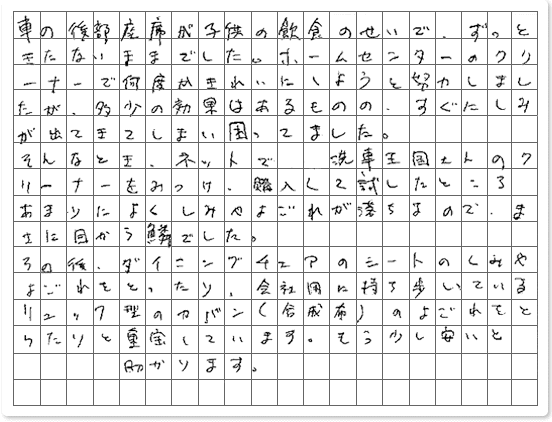 車の後部座席が子供の飲食のせいで、ずっと
きたないままでした。ホームセンターのクリ
ーナーで何度かきれいにしようと努力しまし
たが、多少の効果はあるものの、すぐにしみ
が出てきてしまい困ってました。
そんなとき、ネットで　　洗車王国さんのク
リーナーをみつけ、購入して試したところ
あまりによくしみやよごれが落ちるので、ま
さに目から鱗でした。
その後、ダイニングチェアのシートのしみや
よごれをとったり、会社用に持ち歩いている
リュック型のカバン(合成布)のよごれをと
ったりと重宝しています。もう少し安いと
助かります。